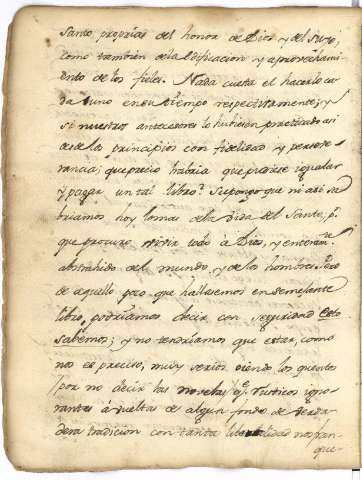 Santo, proprias del honor de Dios, y del suyo,
como tambien de la edificacion y aprovechami-
ento de los fieles. Nada cuesta el hacerlo ca
da uno en su tiempo respectivamente; y
si nuestros antecesores lo hubiesen practicado asi
desde los principios con fidelidad y perseve-
rancia; que precio habria que pudiese igualar
y pagar un tal libro? Supongo que ni asi sa
briamos hoy lo mas de la Vida del Santo, p.
que procuró vivir todo á Dios, y enteram.te
abstrahido del mundo, y de los hombres. Pero
de aquello poco que hallasemos en semejante
libro, podriamos decir con seguridad Esto
sabemos; y no tendriamos que estar, como
nos es preciso, muy serios oiendo los quentos
por no decir las novelas q.e Rusticos igno-
rantes á vueltas de algun fondo de verda
dera tradicion con tanta liberalidad nos fran
que-